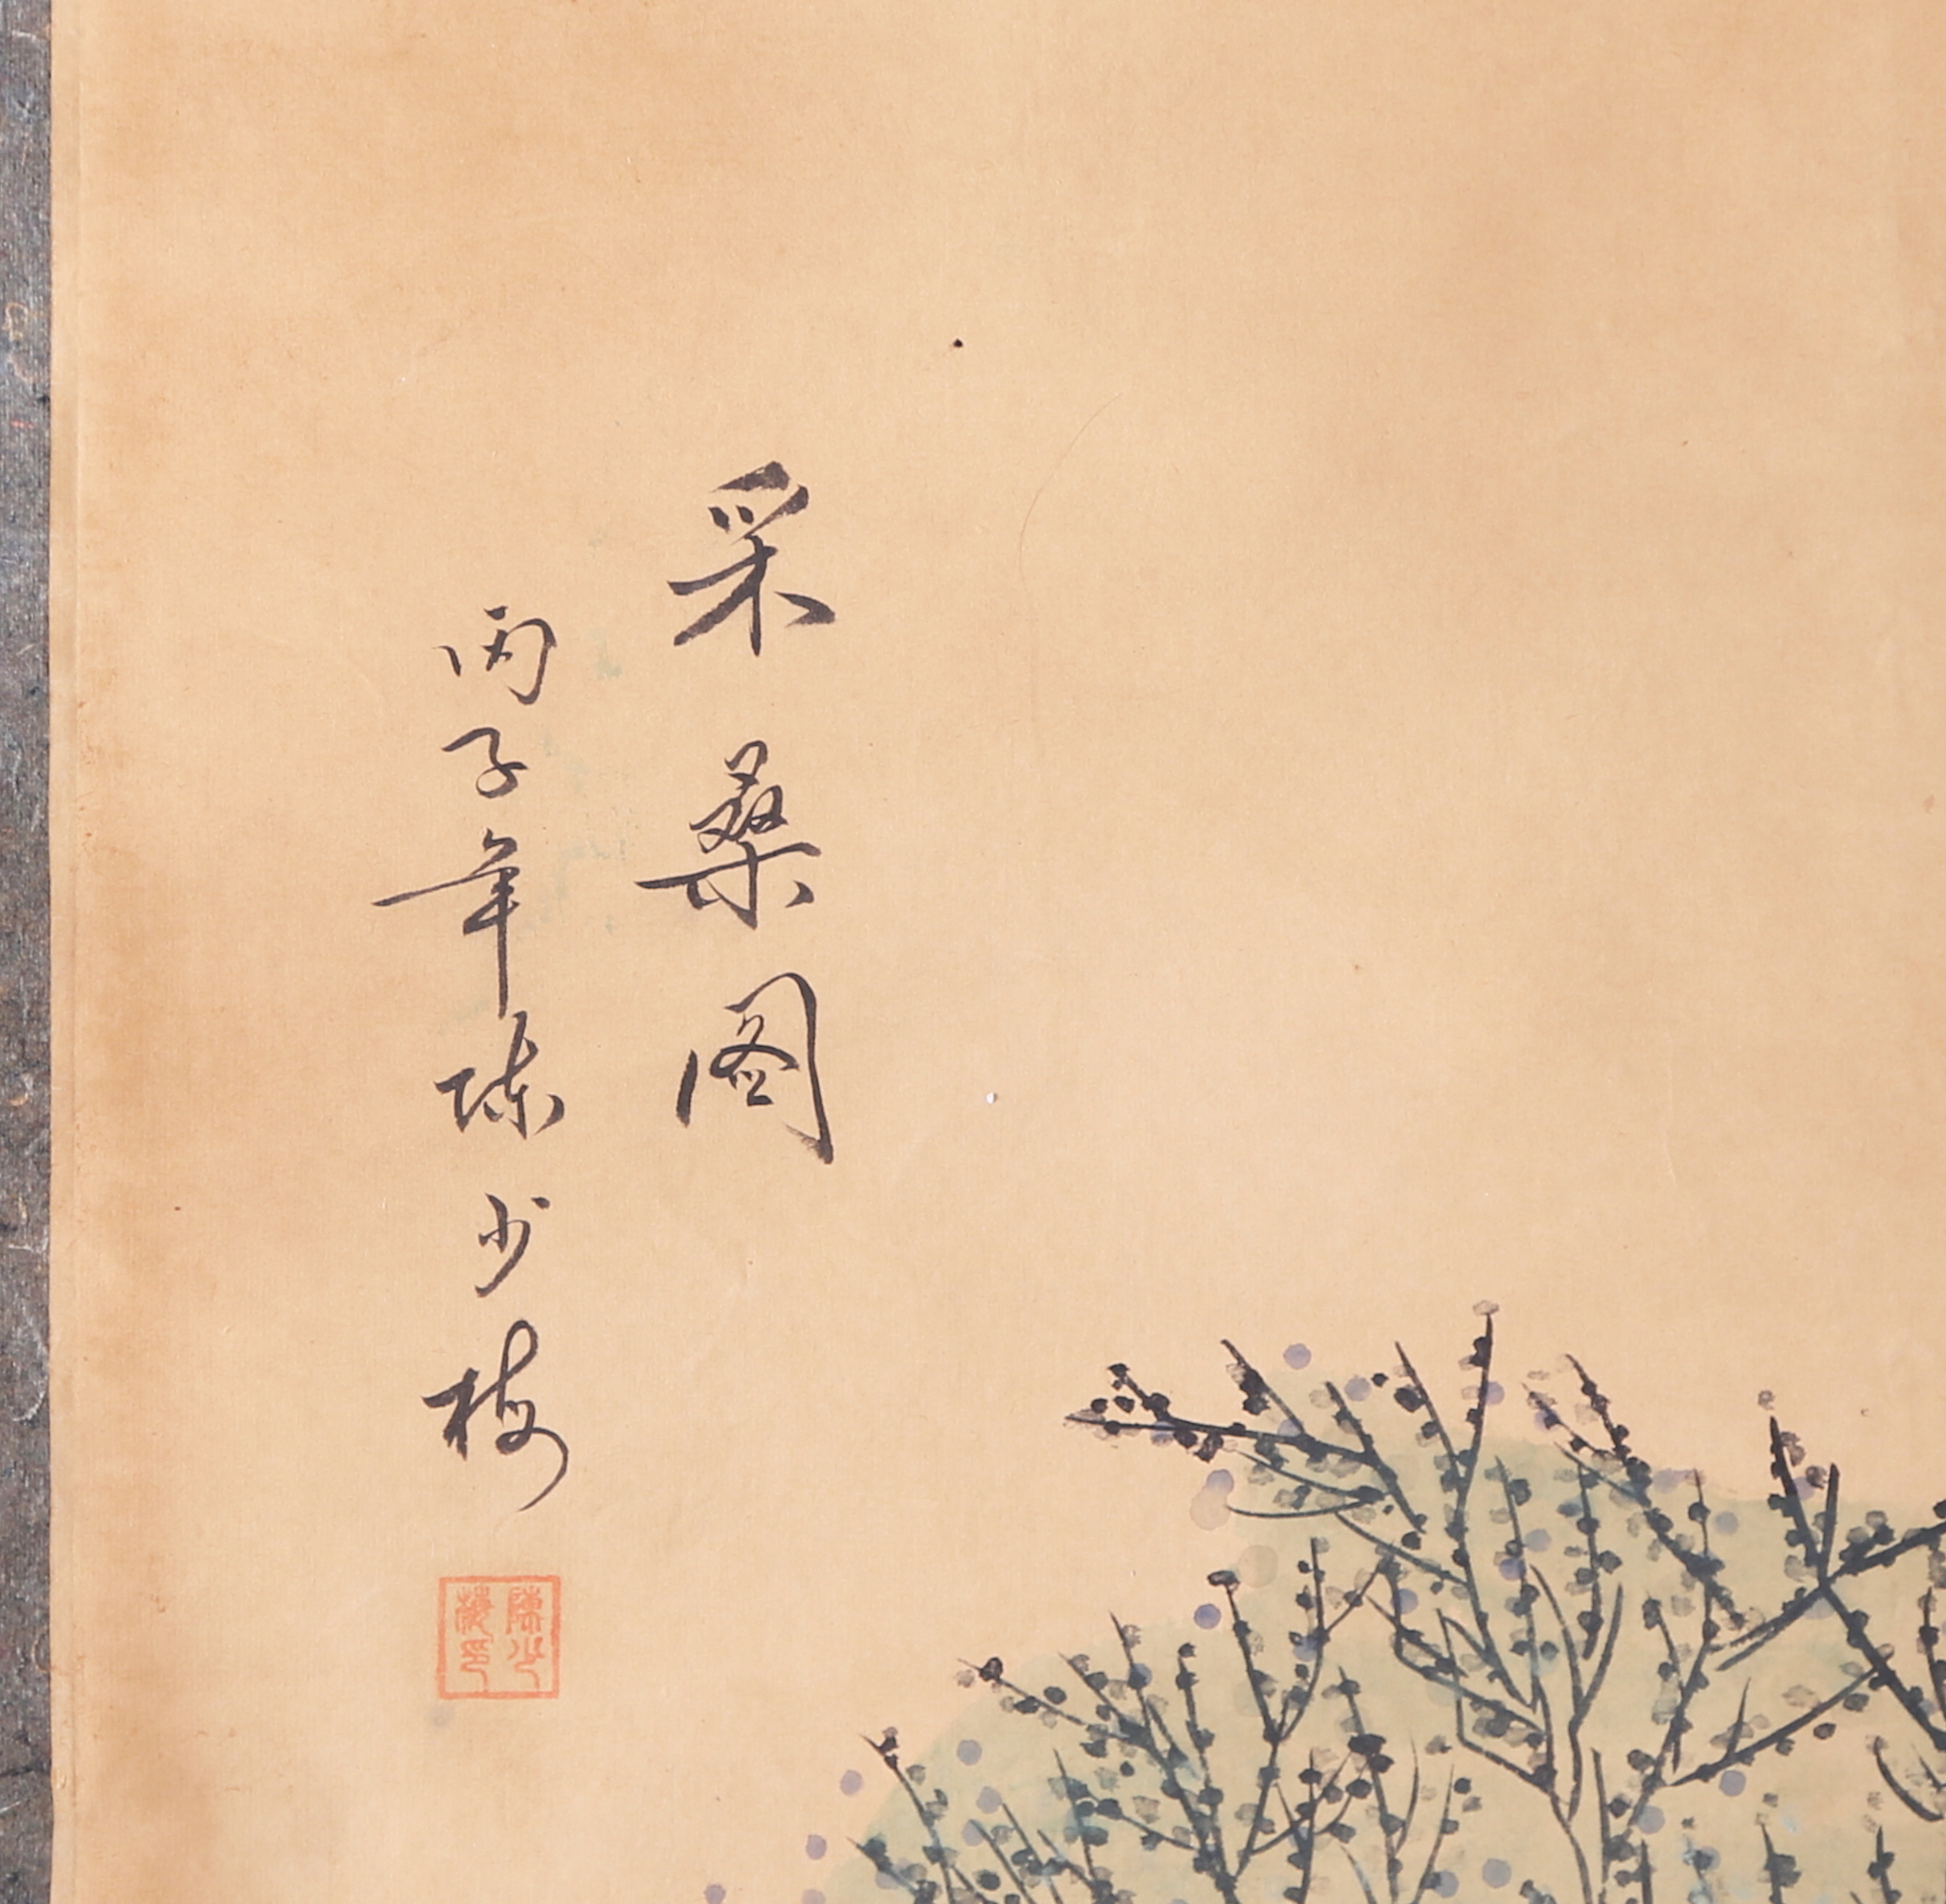 采桑图
丙子年陈少梅
陳少
梅印